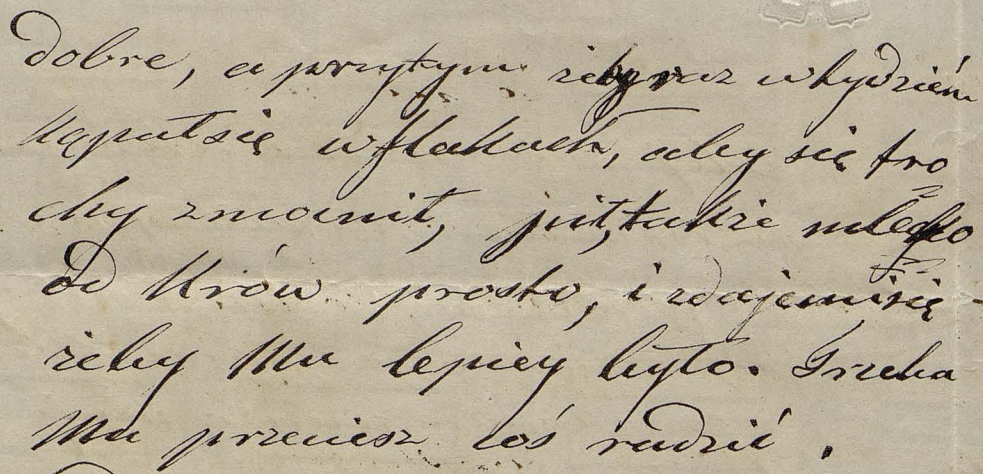 dobre, a przytym żeby raz w tydzień
kąpał się w flakach, aby się tro
chy zmocnił, pił także mleko
od krów prosto, i zdaje mi się
żeby mu lepiey było. Trzeba
mu przeciesz coś radzić.